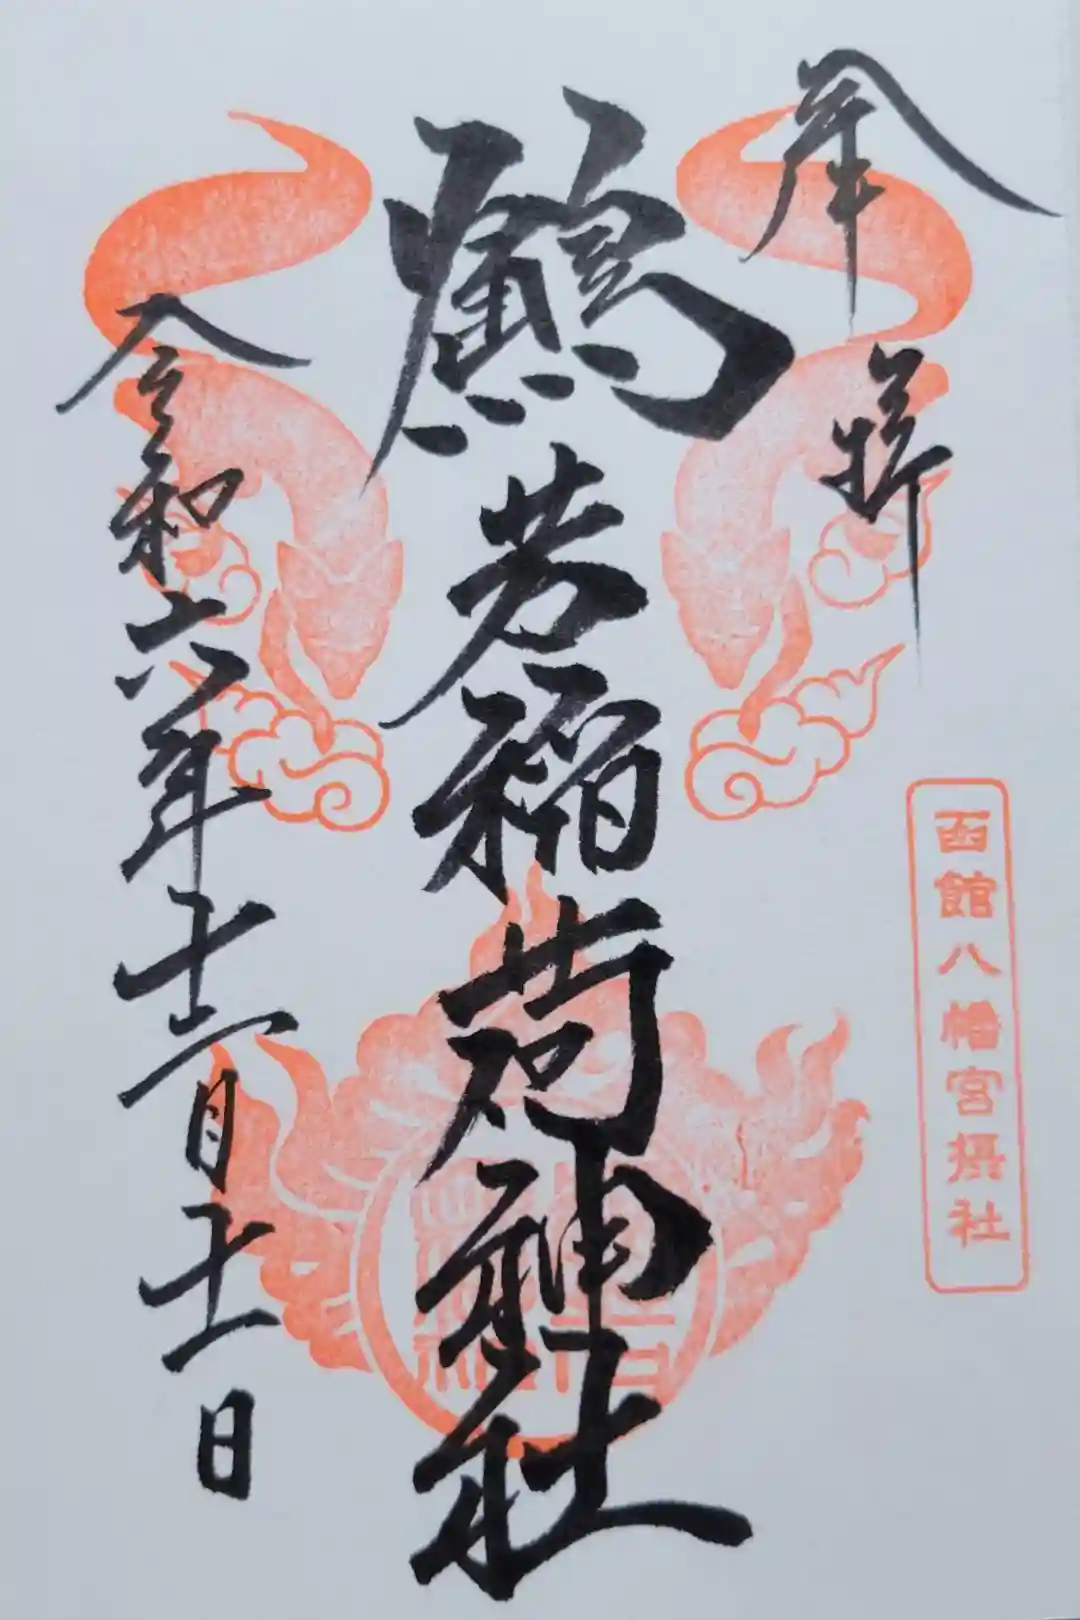 奉拝
函館八幡宮摂社
鶴若稲荷神社
令和六年十二月十一日